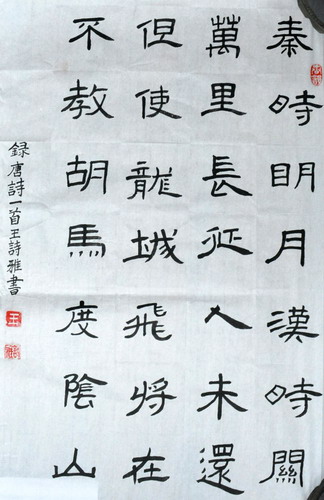 秦時明月漢時關
萬里長征人未還
但使龍城飛將在
不教胡馬度陰山
錄唐詩一首王詩雅書